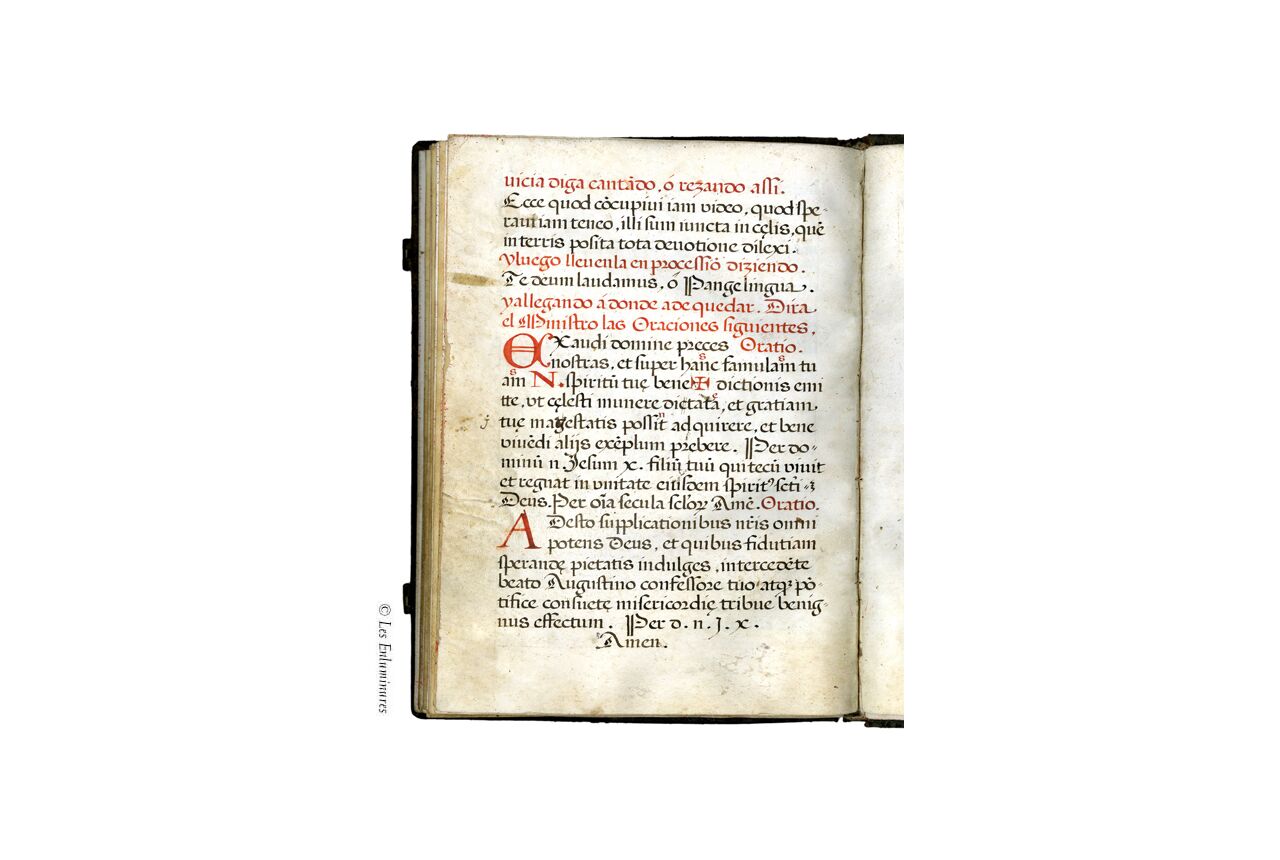 uicia diga cantãdo, ó rezando assi.
Ecce quod cõcupiui iam video, quod spe-
ratum iam teneo, illi sum iuncta in cęlis, quẽ
in terris posita tota deuotione dilexi.
yluego lleuenla en processiõ diziendo.
Te deum laudamus, ó Pange lingua.
yallegando á donde ade quedar. Dira
el Ministro las Oraciones siguientes.
EXaudi domine preces Oratio.
nostras, et super hanc famulam tu
s s
am N. spiritũ tuę bene✠dictionis emi
s
tte, vt cęlesti munere dictata, et gratiam
j tuę magestatis possit adquirere, et bene
n
viuẽdi alijs exẽplum prebere. Per do-
minũ n. Jesum x. filiũ tuũ qui tecũ viuit
et regnat in vnitate eiusdem spirit⁹ scti
Deus. Per oĩa secula sclor Amẽ. Oratio.
ADesto supplicationibus nris omni
potens Deus, et quibus fidutiam
sperandę pietatis indulges, intercedẽte
beato Augustino confessore tuo atqꝫ põ-
tifice consuetę misericordię tribue benig-
nus effectum. Per d. n. J. x.
Amen.
© Les Enluminures